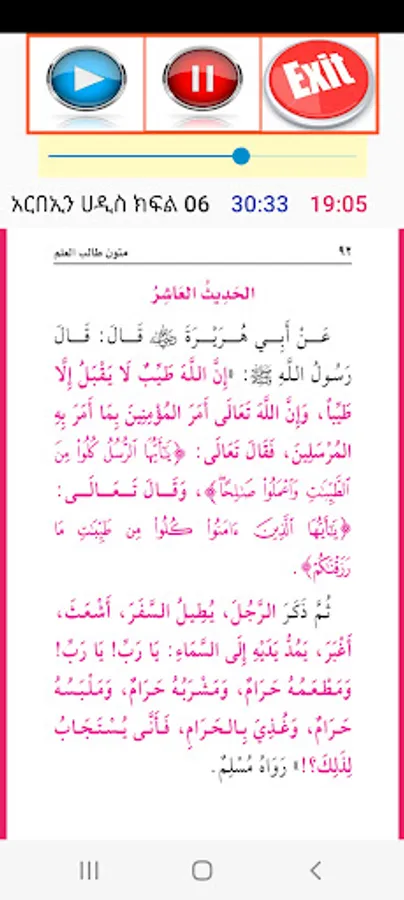 Exit
አርበኢን ሀዲስ ክፍል 06 30:33 19:05
متون طالب العلم ٩٢
الحَدِيثُ العَاشِرُ
عَنْ أَبِي هُرَيْرَةَ ﵁ قَالَ: قَالَ
رَسُولُ اللَّهِ ﷺ: «إِنَّ اللَّهَ طَيِّبٌ لَا يَقْبَلُ إِلَّا
طَيِّباً، وَإِنَّ اللَّهَ تَعَالَى أَمَرَ المُؤْمِنِينَ بِمَا أَمَرَ بِهِ
المُرْسَلِينَ، فَقَالَ تَعَالَى: ﴿يَٰٓأَيُّهَا ٱلرُّسُلُ كُلُوا۟ مِنَ
ٱلطَّيِّبَٰتِ وَٱعْمَلُوا۟ صَٰلِحًا﴾، وَقَالَ تَعَالَى:
﴿يَٰٓأَيُّهَا ٱلَّذِينَ ءَامَنُوا۟ كُلُوا۟ مِن طَيِّبَٰتِ مَا
رَزَقْنَٰكُمْ﴾.
ثُمَّ ذَكَرَ الرَّجُلَ، يُطِيلُ السَّفَرَ، أَشْعَثَ،
أَغْبَرَ، يَمُدُّ يَدَيْهِ إِلَى السَّمَاءِ: يَا رَبِّ! يَا رَبِّ!
وَمَطْعَمُهُ حَرَامٌ، وَمَشْرَبُهُ حَرَامٌ، وَمَلْبَسُهُ
حَرَامٌ، وَغُذِيَ بِالحَرَامِ، فَأَنَّى يُسْتَجَابُ
لِذَلِكَ؟!» رَوَاهُ مُسْلِمٌ.